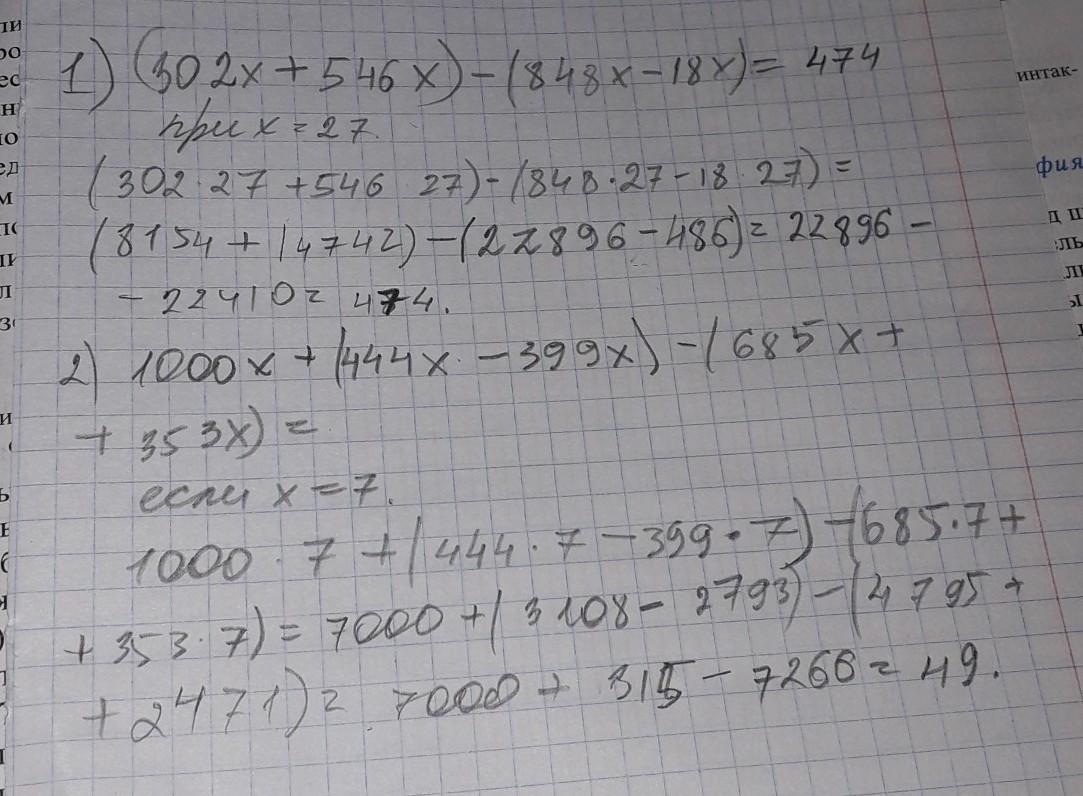 1) (302x + 546x) - (848x - 18x) = 474
при x = 27.
(302 · 27 + 546 · 27) - (848 · 27 - 18 · 27) =
(8154 + 14742) - (22896 - 486) = 22896 -
- 22410 = 474.
2) 1000x + (444x - 399x) - (685x +
+ 353x) =
если x = 7.
1000 · 7 + (444 · 7 - 399 · 7) - (685 · 7 +
+ 353 · 7) = 7000 + (3108 - 2793) - (4795 +
+ 2471) = 7000 + 315 - 7266 = 49.
интак-
фия